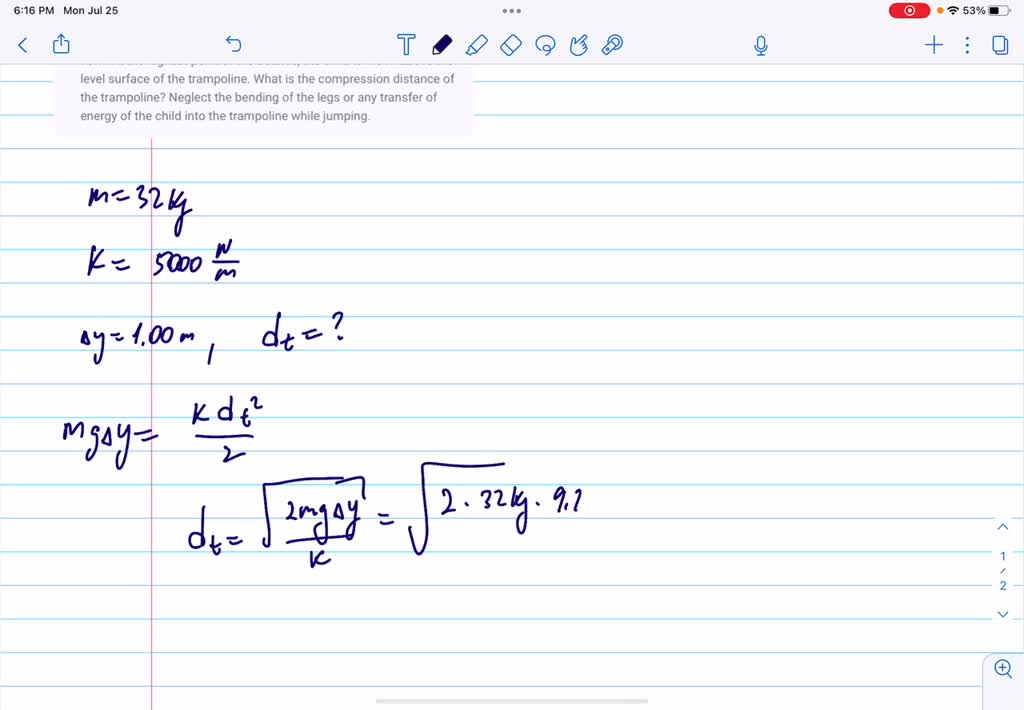 6:16 PM Mon Jul 25
53%
level surface of the trampoline. What is the compression distance of
the trampoline? Neglect the bending of the legs or any transfer of
energy of the child into the trampoline while jumping.
m=32kg
K= 5000 N/m
Δy=1.00m, dₜ=?
mgΔy= K dₜ²/2
dₜ= √(2mgΔy/K) = √2·32kg·9.
1/2